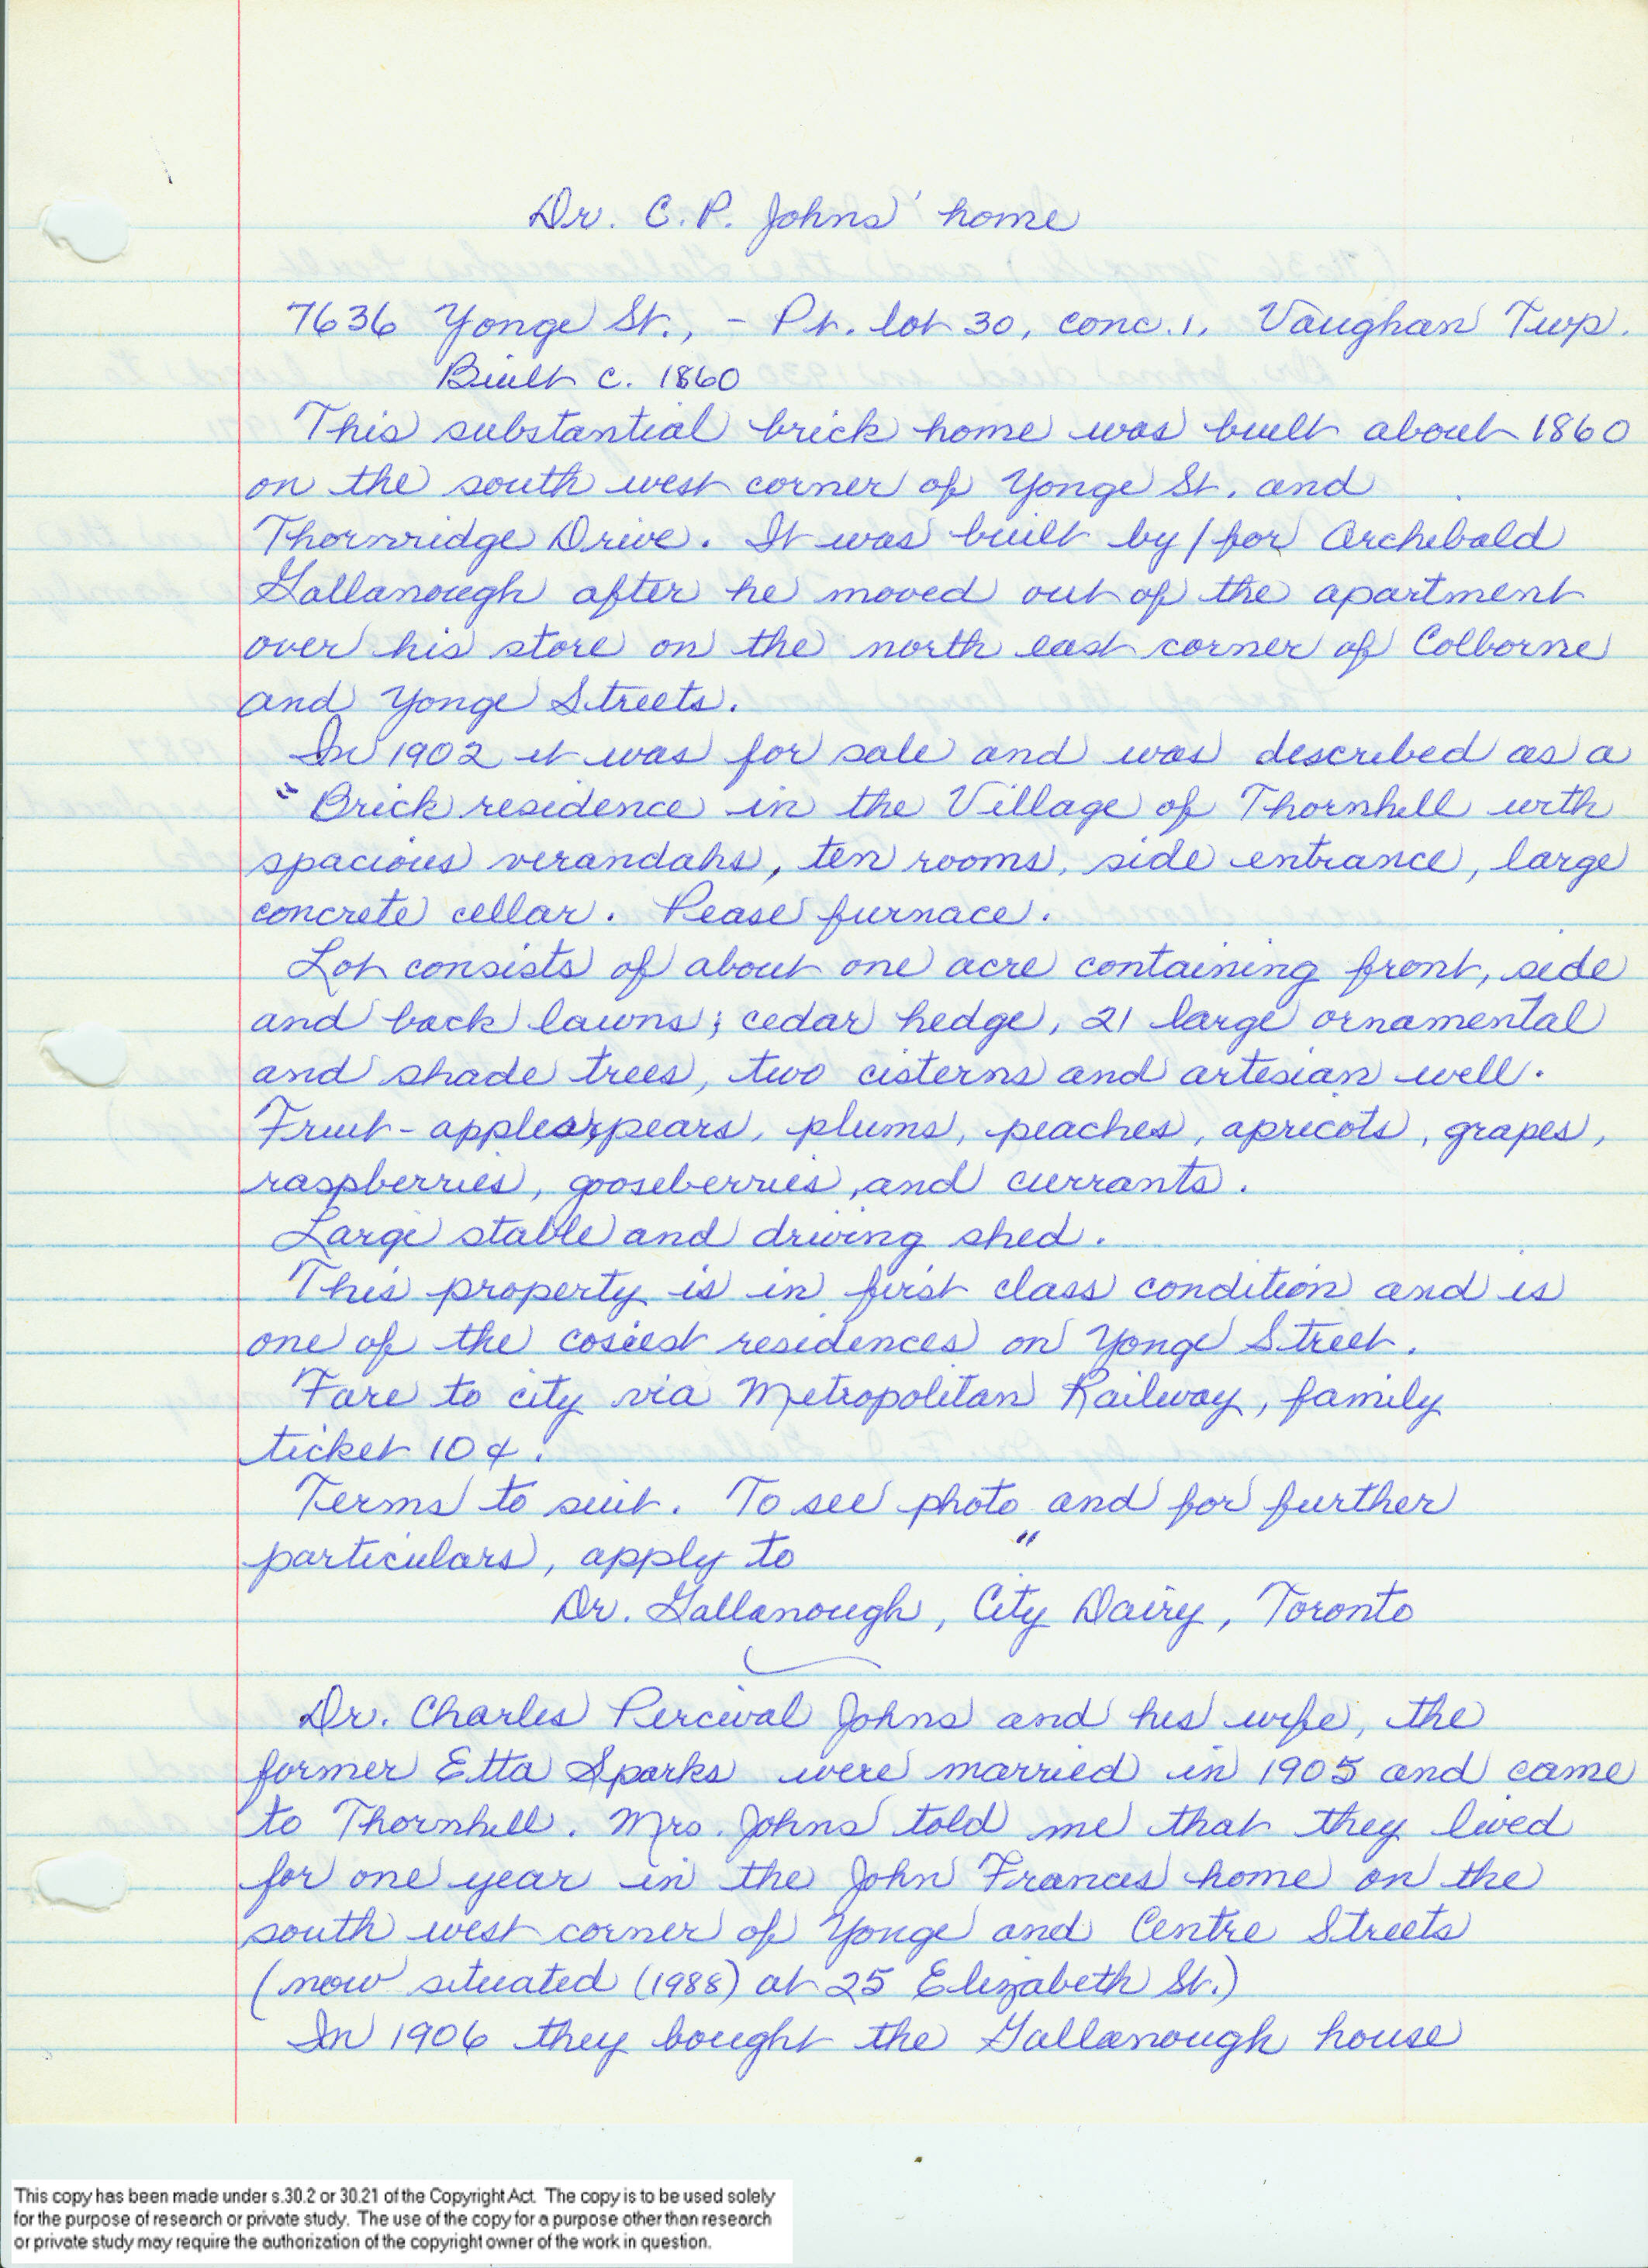 Dr. C. P. Johns' home
7636 Yonge St., - Pt. lot 30, conc. 1, Vaughan Twp.
Built c. 1860
This substantial brick home was built about 1860
on the south west corner of Yonge St. and
Thornridge Drive. It was built by/for Archibald
Gallanough after he moved out of the apartment
over his store on the north east corner of Colborne
and Yonge Streets.
In 1902 it was for sale and was described as a
"Brick residence in the Village of Thornhill with
spacious verandahs, ten rooms, side entrance, large
concrete cellar. Pease furnace.
Lot consists of about one acre containing front, side
and back lawns; cedar hedge, 21 large ornamental
and shade trees, two cisterns and artesian well.
Fruit - apples, pears, plums, peaches, apricots, grapes,
raspberries, gooseberries, and currants.
Large stable and driving shed.
This property is in first class condition and is
one of the cosiest residences on Yonge Street.
Fare to city via Metropolitan Railway, family
ticket 10¢.
Terms to suit. To see photo and for further
particulars, apply to "
Dr. Gallanough, City Dairy, Toronto
Dr. Charles Percival Johns and his wife, the
former Etta Sparks were married in 1905 and came
to Thornhill. Mrs. Johns told me that they lived
for one year in the John Francis home on the
south west corner of Yonge and Centre Streets
(now situated (1988) at 25 Elizabeth St.)
In 1906 they bought the Gallanough house
This copy has been made under s.30.2 or 30.21 of the Copyright Act. The copy is to be used solely
for the purpose of research or private study. The use of the copy for a purpose other than research
or private study may require the authorization of the copyright owner of the work in question.